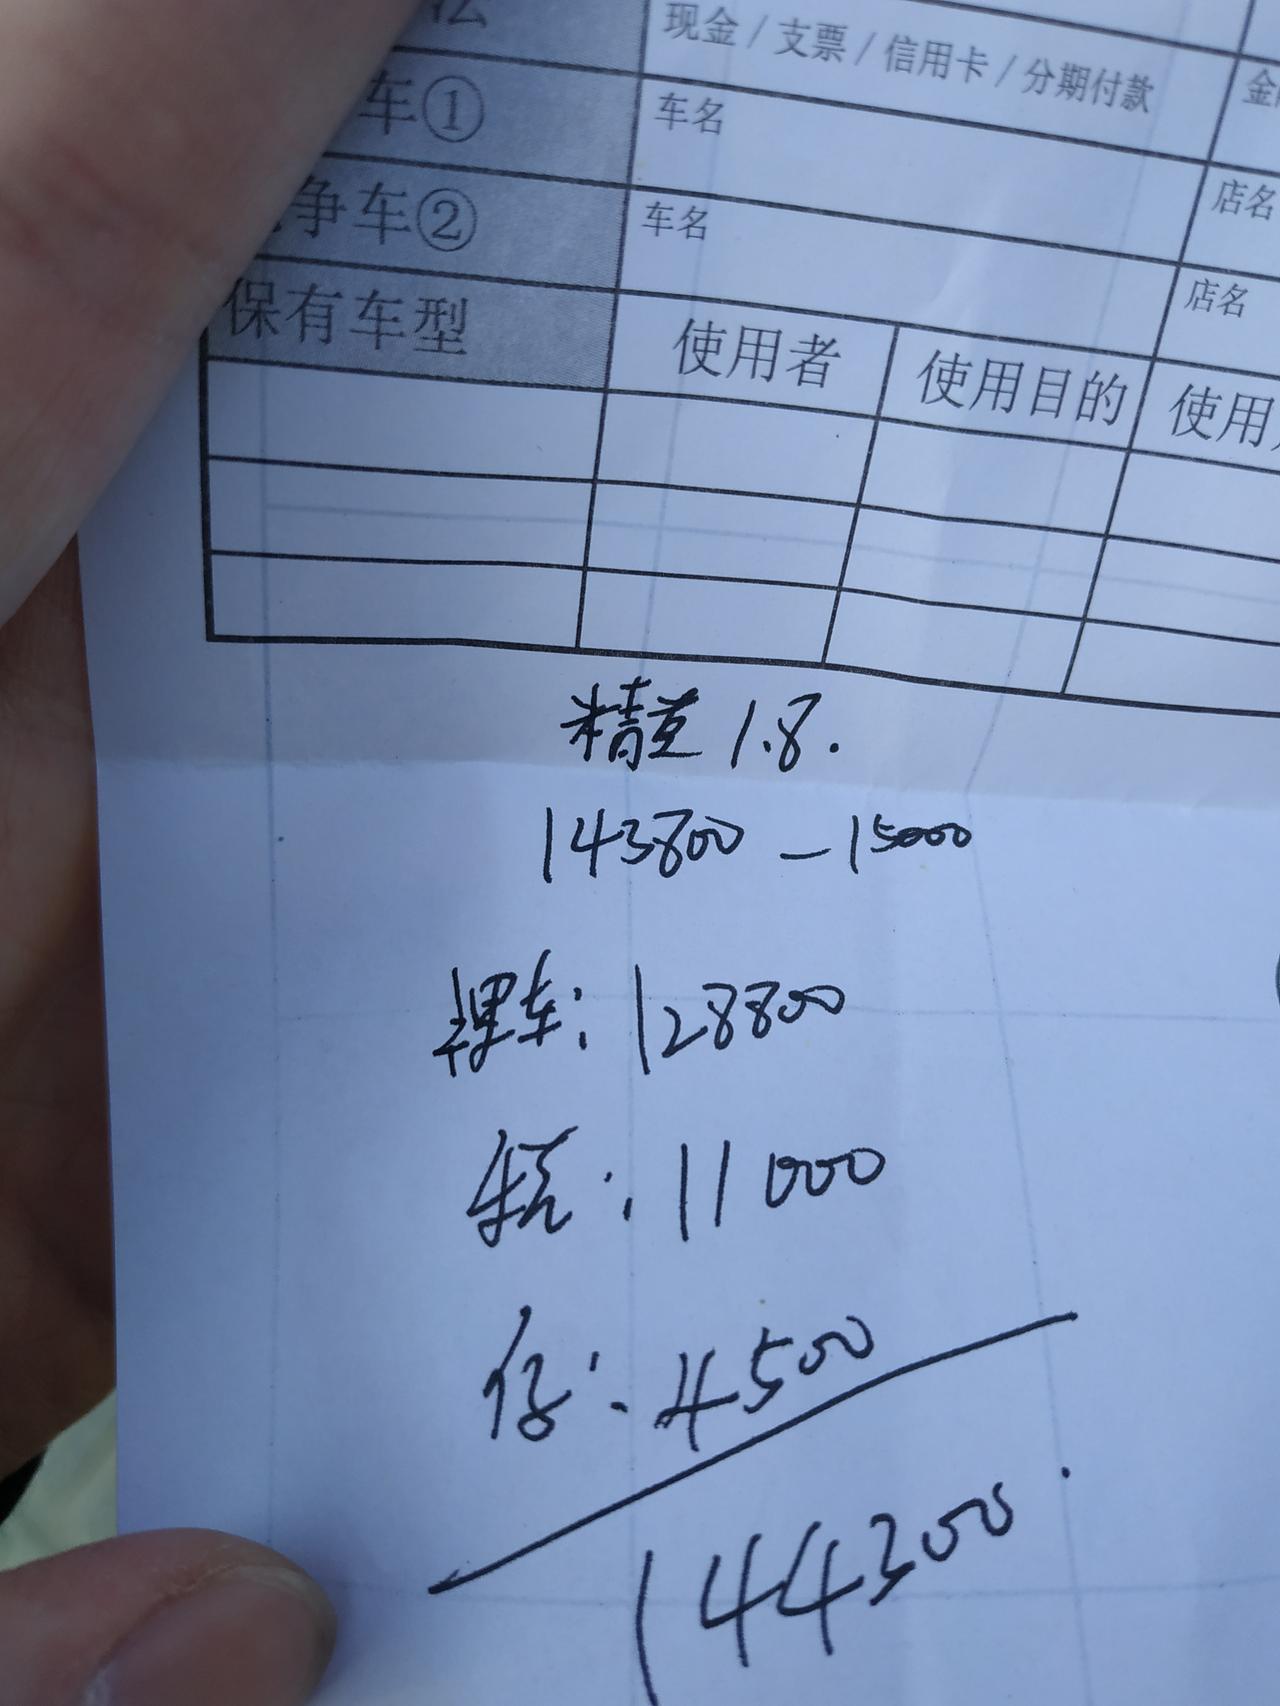 法
现金 / 支票 / 信用卡 / 分期付款
车①
车名
争车②
车名
店名
店名
保有车型
使用者
使用目的
使用
精英 1.8.
143800 - 15000
裸车: 128800
车税: 11000
保: 4500
144300.